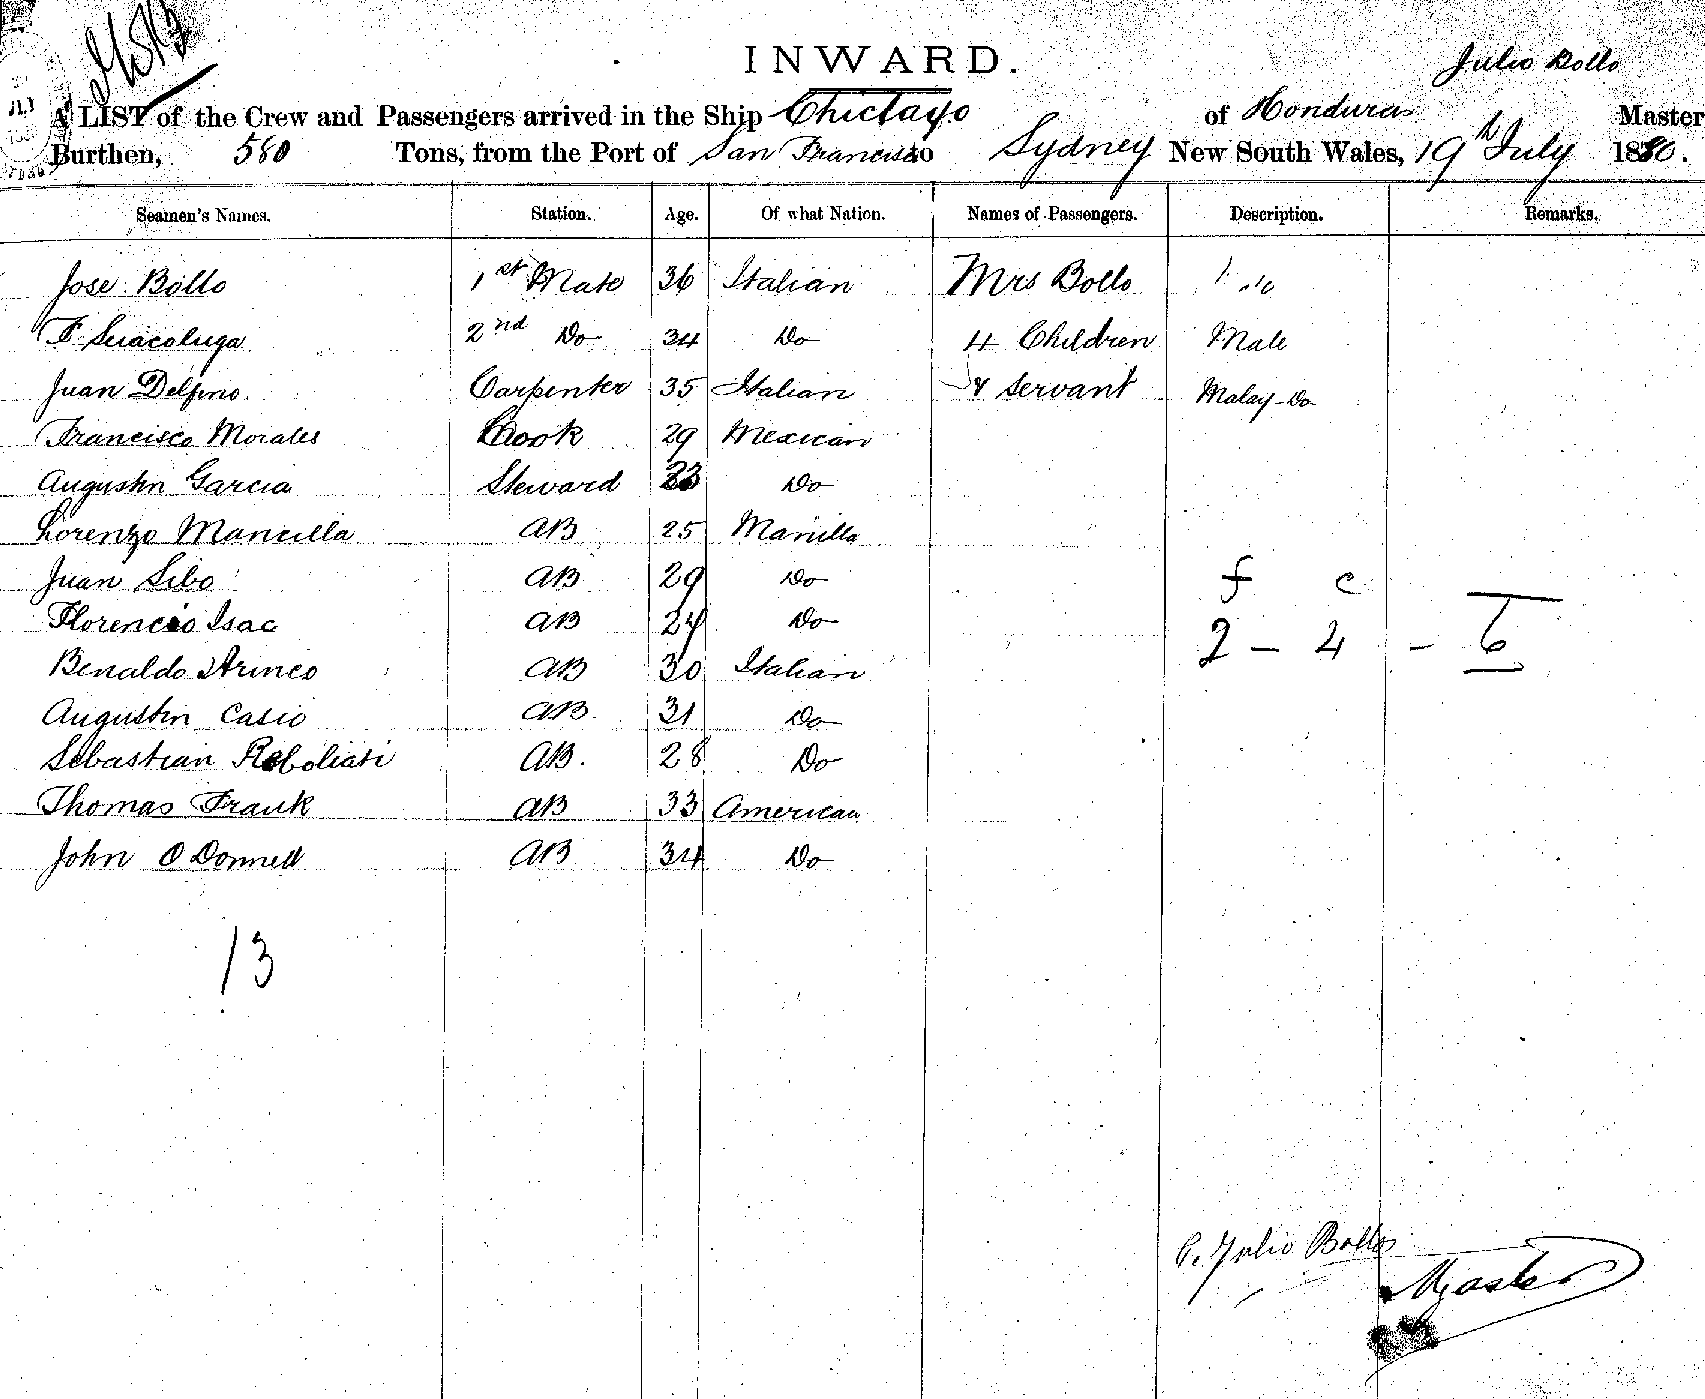 INWARD.
Julio Bollo
A LIST of the Crew and Passengers arrived in the Ship Chiclayo of Honduras Master
Burthen, 580 Tons, from the Port of San Francisco to Sydney New South Wales, 19th July 1880.
Seamen's Names. Station. Age. Of what Nation. Names of Passengers. Description. Remarks.
Jose Bollo 1st Mate 36 Italian Mrs Bollo
F. Suacoluga 2nd Do 34 Do 4 Children Male
Juan Delfino Carpenter 35 Italian & Servant Malay Do
Francisco Morales Cook 29 Mexican
Augustin Garcia Steward 23 Do
Lorenzo Mancilla AB 25 Manilla
Juan Sibo AB 29 Do
Florencio Isac AB 24 Do
f c
2 - 4 - 6
Benaldo Arinco AB 30 Italian
Augustin Casio AB 31 Do
Sebastian Reboliati AB. 28 Do
Thomas Frank AB 33 American
John O Donnell AB 34 Do
13
C. Julio Bollo
Master